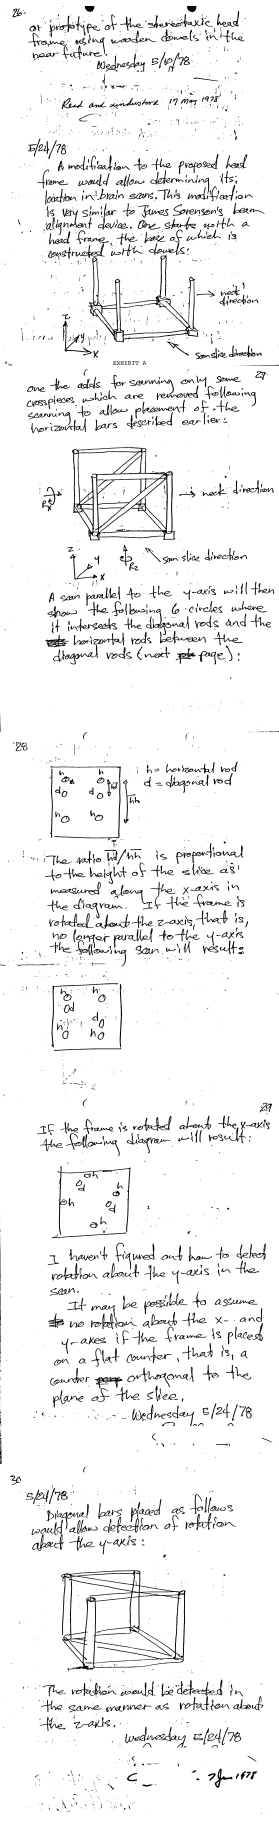 26
or prototype of the stereotaxic head
frame using wooden dowels in the
near future.
Wednesday 5/10/78
Read and understood 17 May 1978
5/24/78
A modification to the proposed head
frame would allow determining its
location in brain scans. This modification
is very similar to James Sorenson's beam
alignment device. One starts with a
head frame, the base of which is
constructed with dowels:
neck direction
scan slice direction
z
y
x
EXHIBIT A
27
one the adds for scanning only some
crosspieces which are removed following
scanning to allow placement of the
horizontal bars described earlier:
Rx
neck direction
z
y
x
Rz
scan slice direction
A scan parallel to the y-axis will then
show the following 6 circles where
it intersects the diagonal rods and the
horizontal rods between the
diagonal rods (next page):
28
h h
d d
h h
hd
hh
h = horizontal rod
d = diagonal rod
The ratio hd/hh is proportional
to the height of the slice as
measured along the x-axis in
the diagram. If the frame is
rotated about the z-axis, that is,
no longer parallel to the y-axis
the following scan will result:
h h
d
d
h h
29
If the frame is rotated about the x-axis
the following diagram will result:
h
d h
h d
h
I haven't figured out how to detect
rotation about the y-axis in the
scan.
It may be possible to assume
no rotation about the x- and
y-axes if the frame is placed
on a flat counter, that is, a
counter orthogonal to the
plane of the slice.
Wednesday 5/24/78
30
5/24/78
Diagonal bars placed as follows
would allow detection of rotation
about the y-axis:
The rotation would be detected in
the same manner as rotation about
the z-axis.
Wednesday 5/24/78
7 Jun 1978